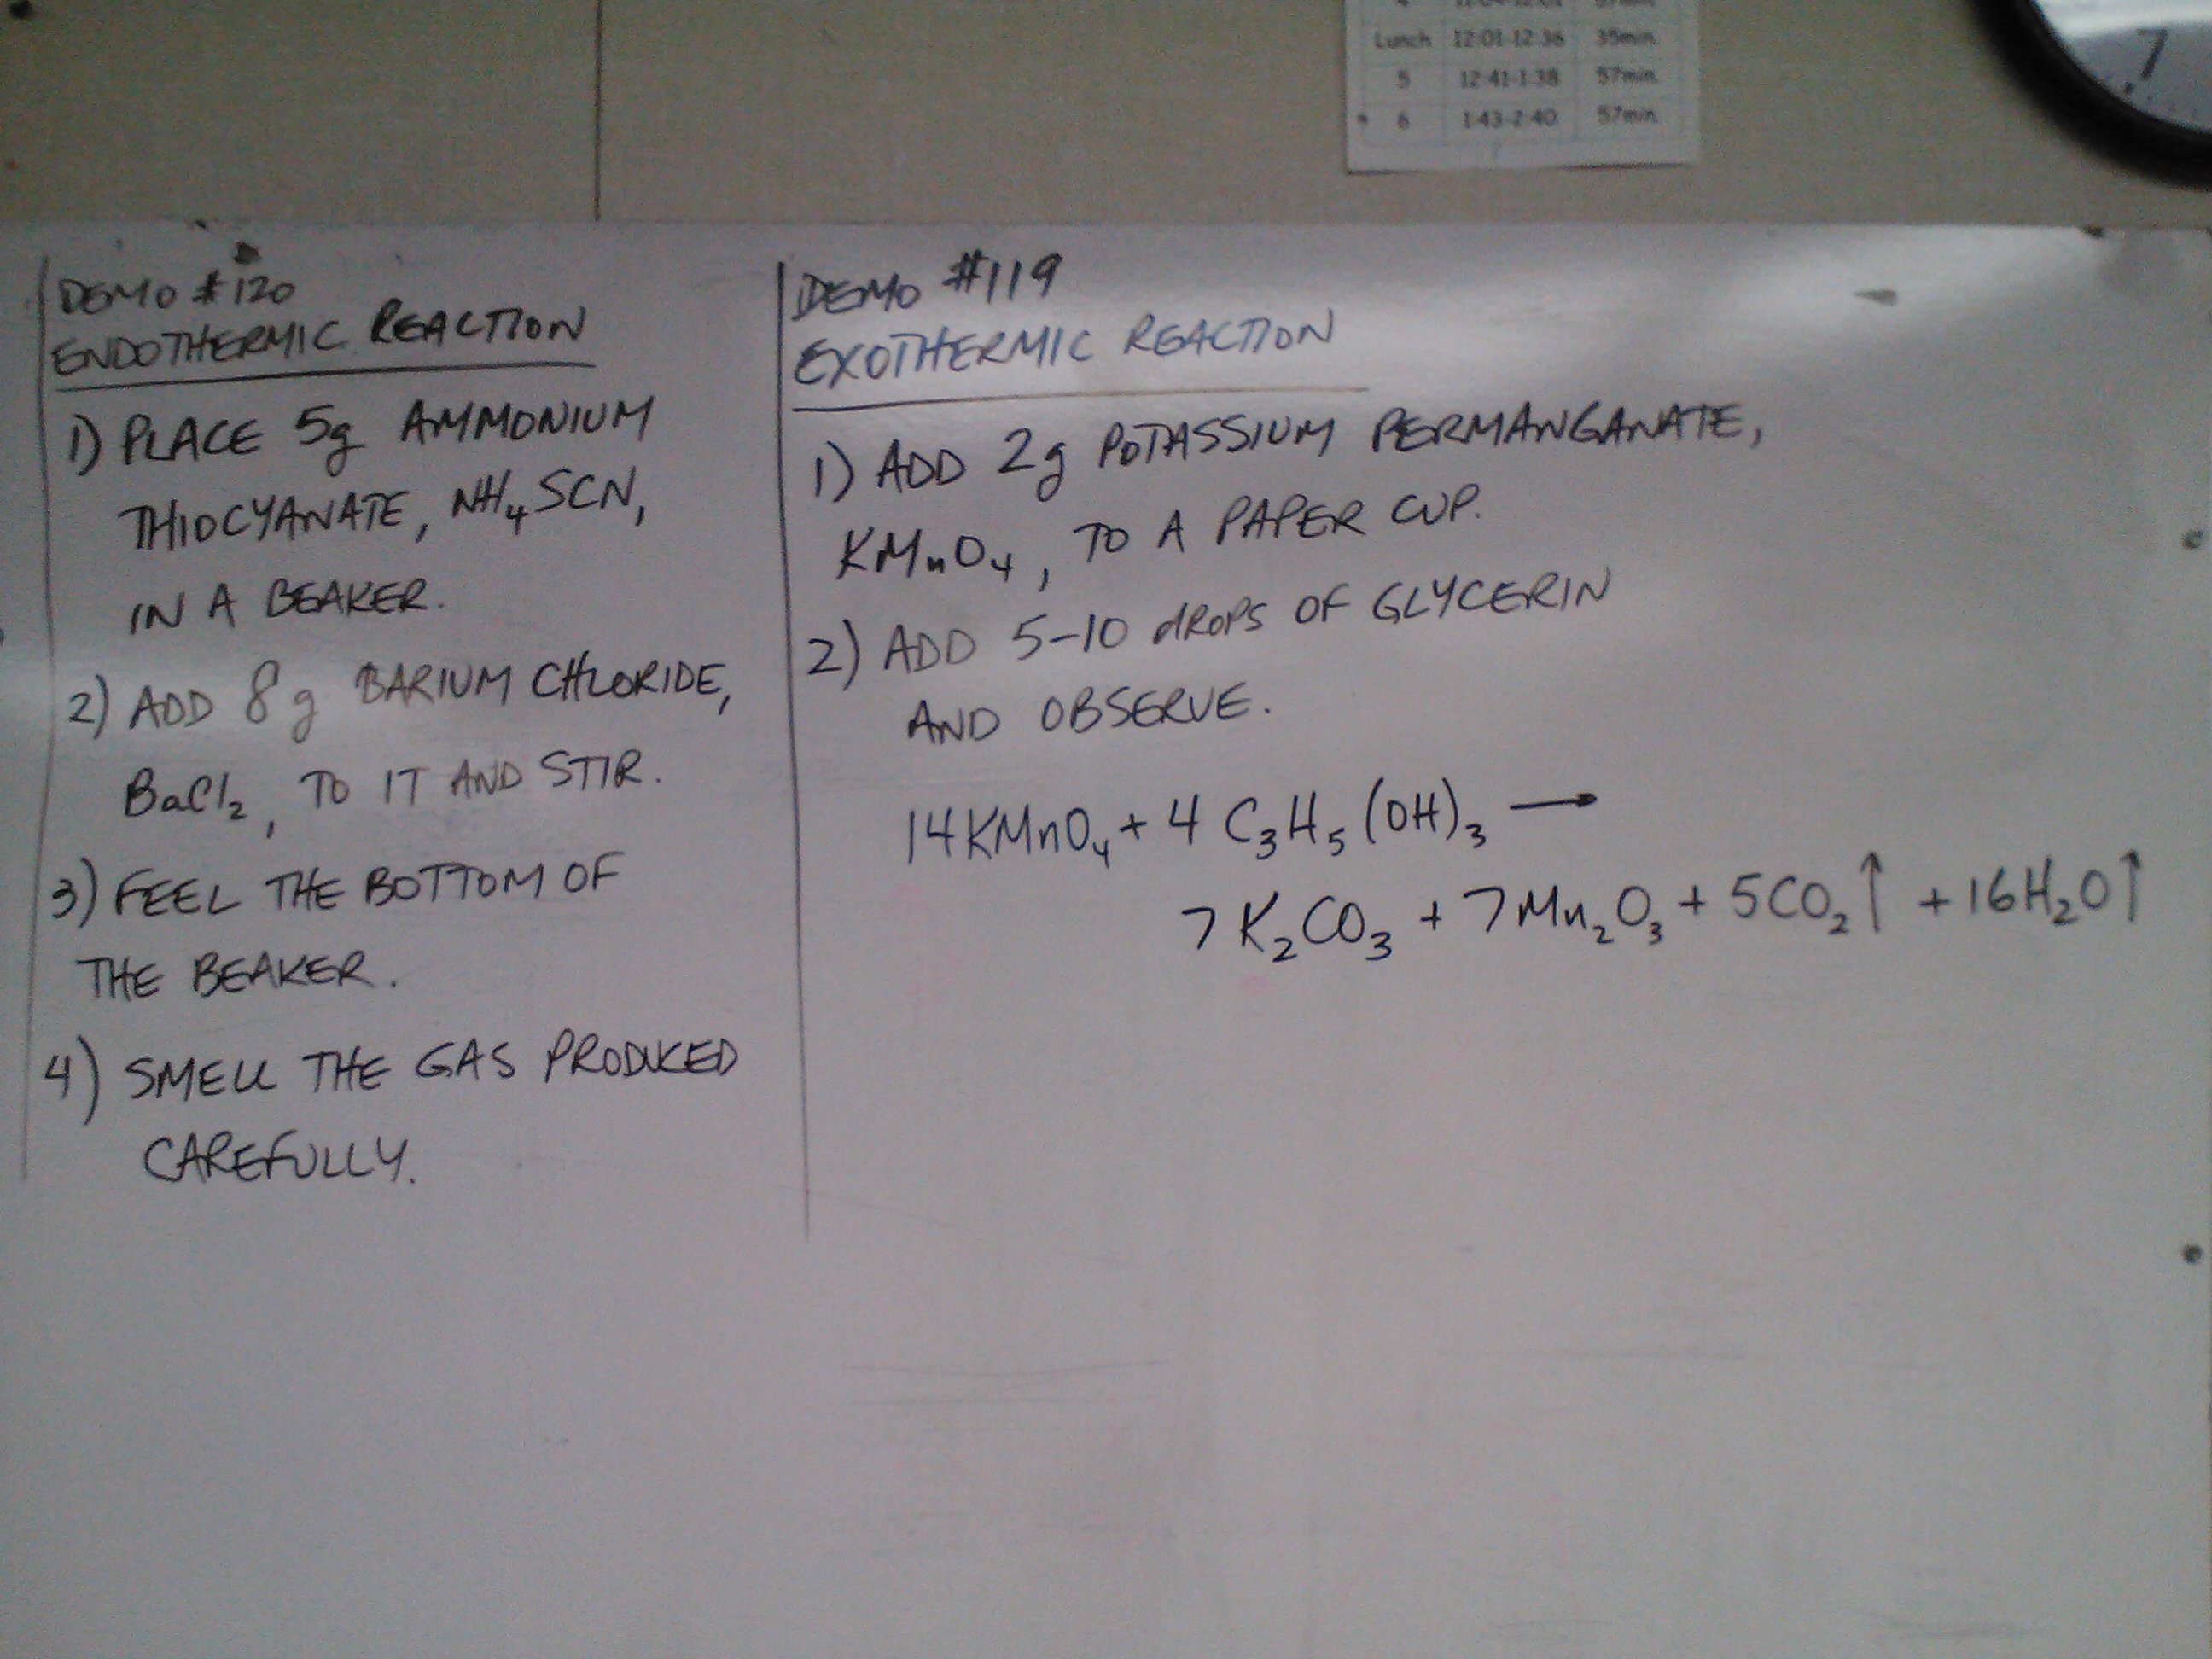 Lunch 12:01-12:36 35min.
5 12:41-1:38 57min.
6 1:43-2:40 57min.
7
DEMO #120
ENDOTHERMIC REACTION
1) PLACE 5g AMMONIUM
THIOCYANATE, NH₄SCN,
IN A BEAKER.
2) ADD 8g BARIUM CHLORIDE,
BaCl₂, TO IT AND STIR.
3) FEEL THE BOTTOM OF
THE BEAKER.
4) SMELL THE GAS PRODUCED
CAREFULLY.
DEMO #119
EXOTHERMIC REACTION
1) ADD 2g POTASSIUM PERMANGANATE,
KMnO₄, TO A PAPER CUP.
2) ADD 5-10 dROPS OF GLYCERIN
AND OBSERVE.
14KMnO₄ + 4 C₃H₅(OH)₃ →
7K₂CO₃ + 7Mn₂O₃ + 5CO₂↑ + 16H₂O↑